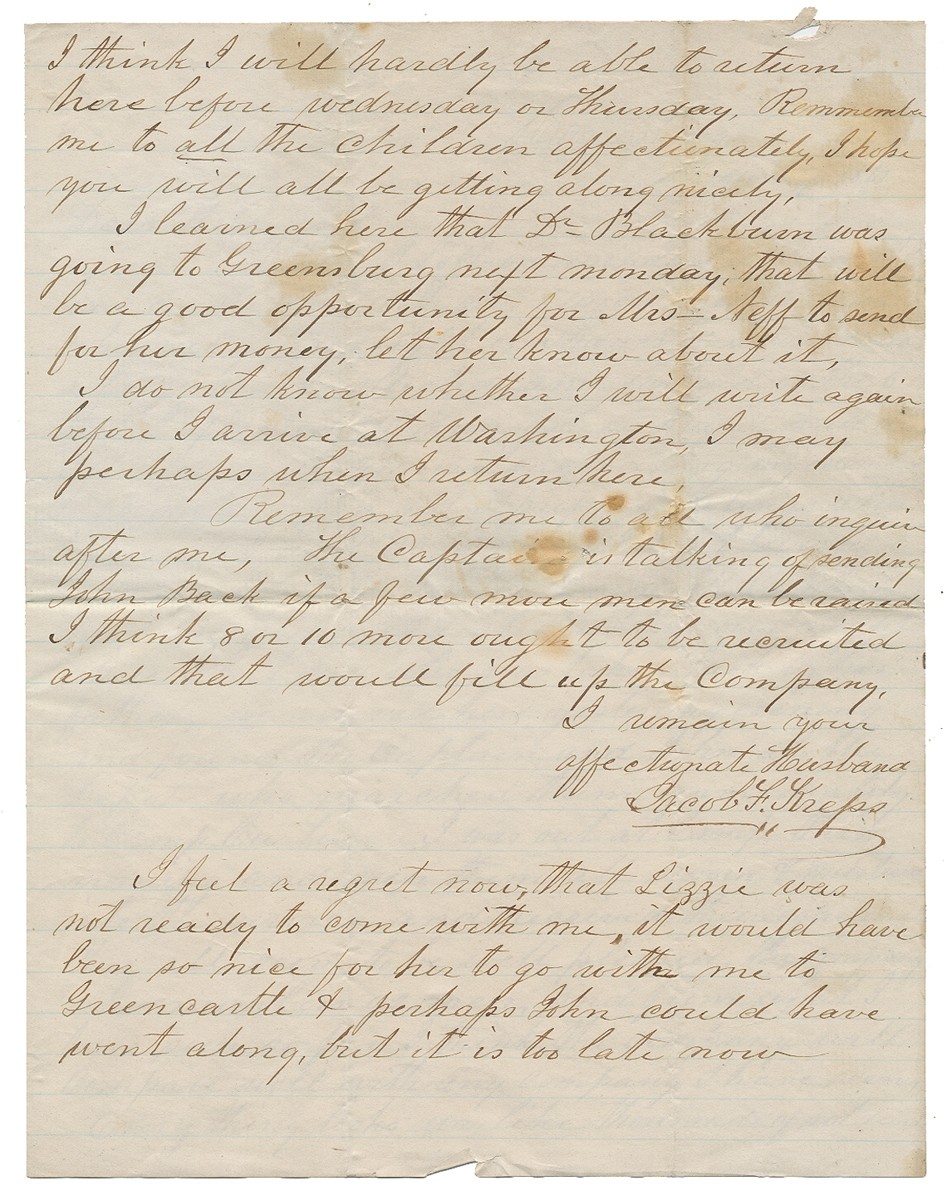 I think I will hardly be able to return
here before wednesday or Thursday, Remmember
me to all the children affectionately, I hope
you will all be getting along nicely,
I learned here that Dr Blackburn was
going to Greensburg next monday, that will
be a good opportunity for Mrs Neff to send
for her money, let her know about it,
I do not know whether I will write again
before I arrive at Washington, I may
perhaps when I return here,
Remember me to all who inquire
after me, The Captain is talking of sending
John Back if a few more men can be raised
I think 8 or 10 more ought to be recruited
and that would fill up the Company,
I remain your
affectionate Husband
Jacob F. Kreps
I feel a regret now, that Lizzie was
not ready to come with me, it would have
been so nice for her to go with me to
Greencastle & perhaps John could have
went along, but it is too late now